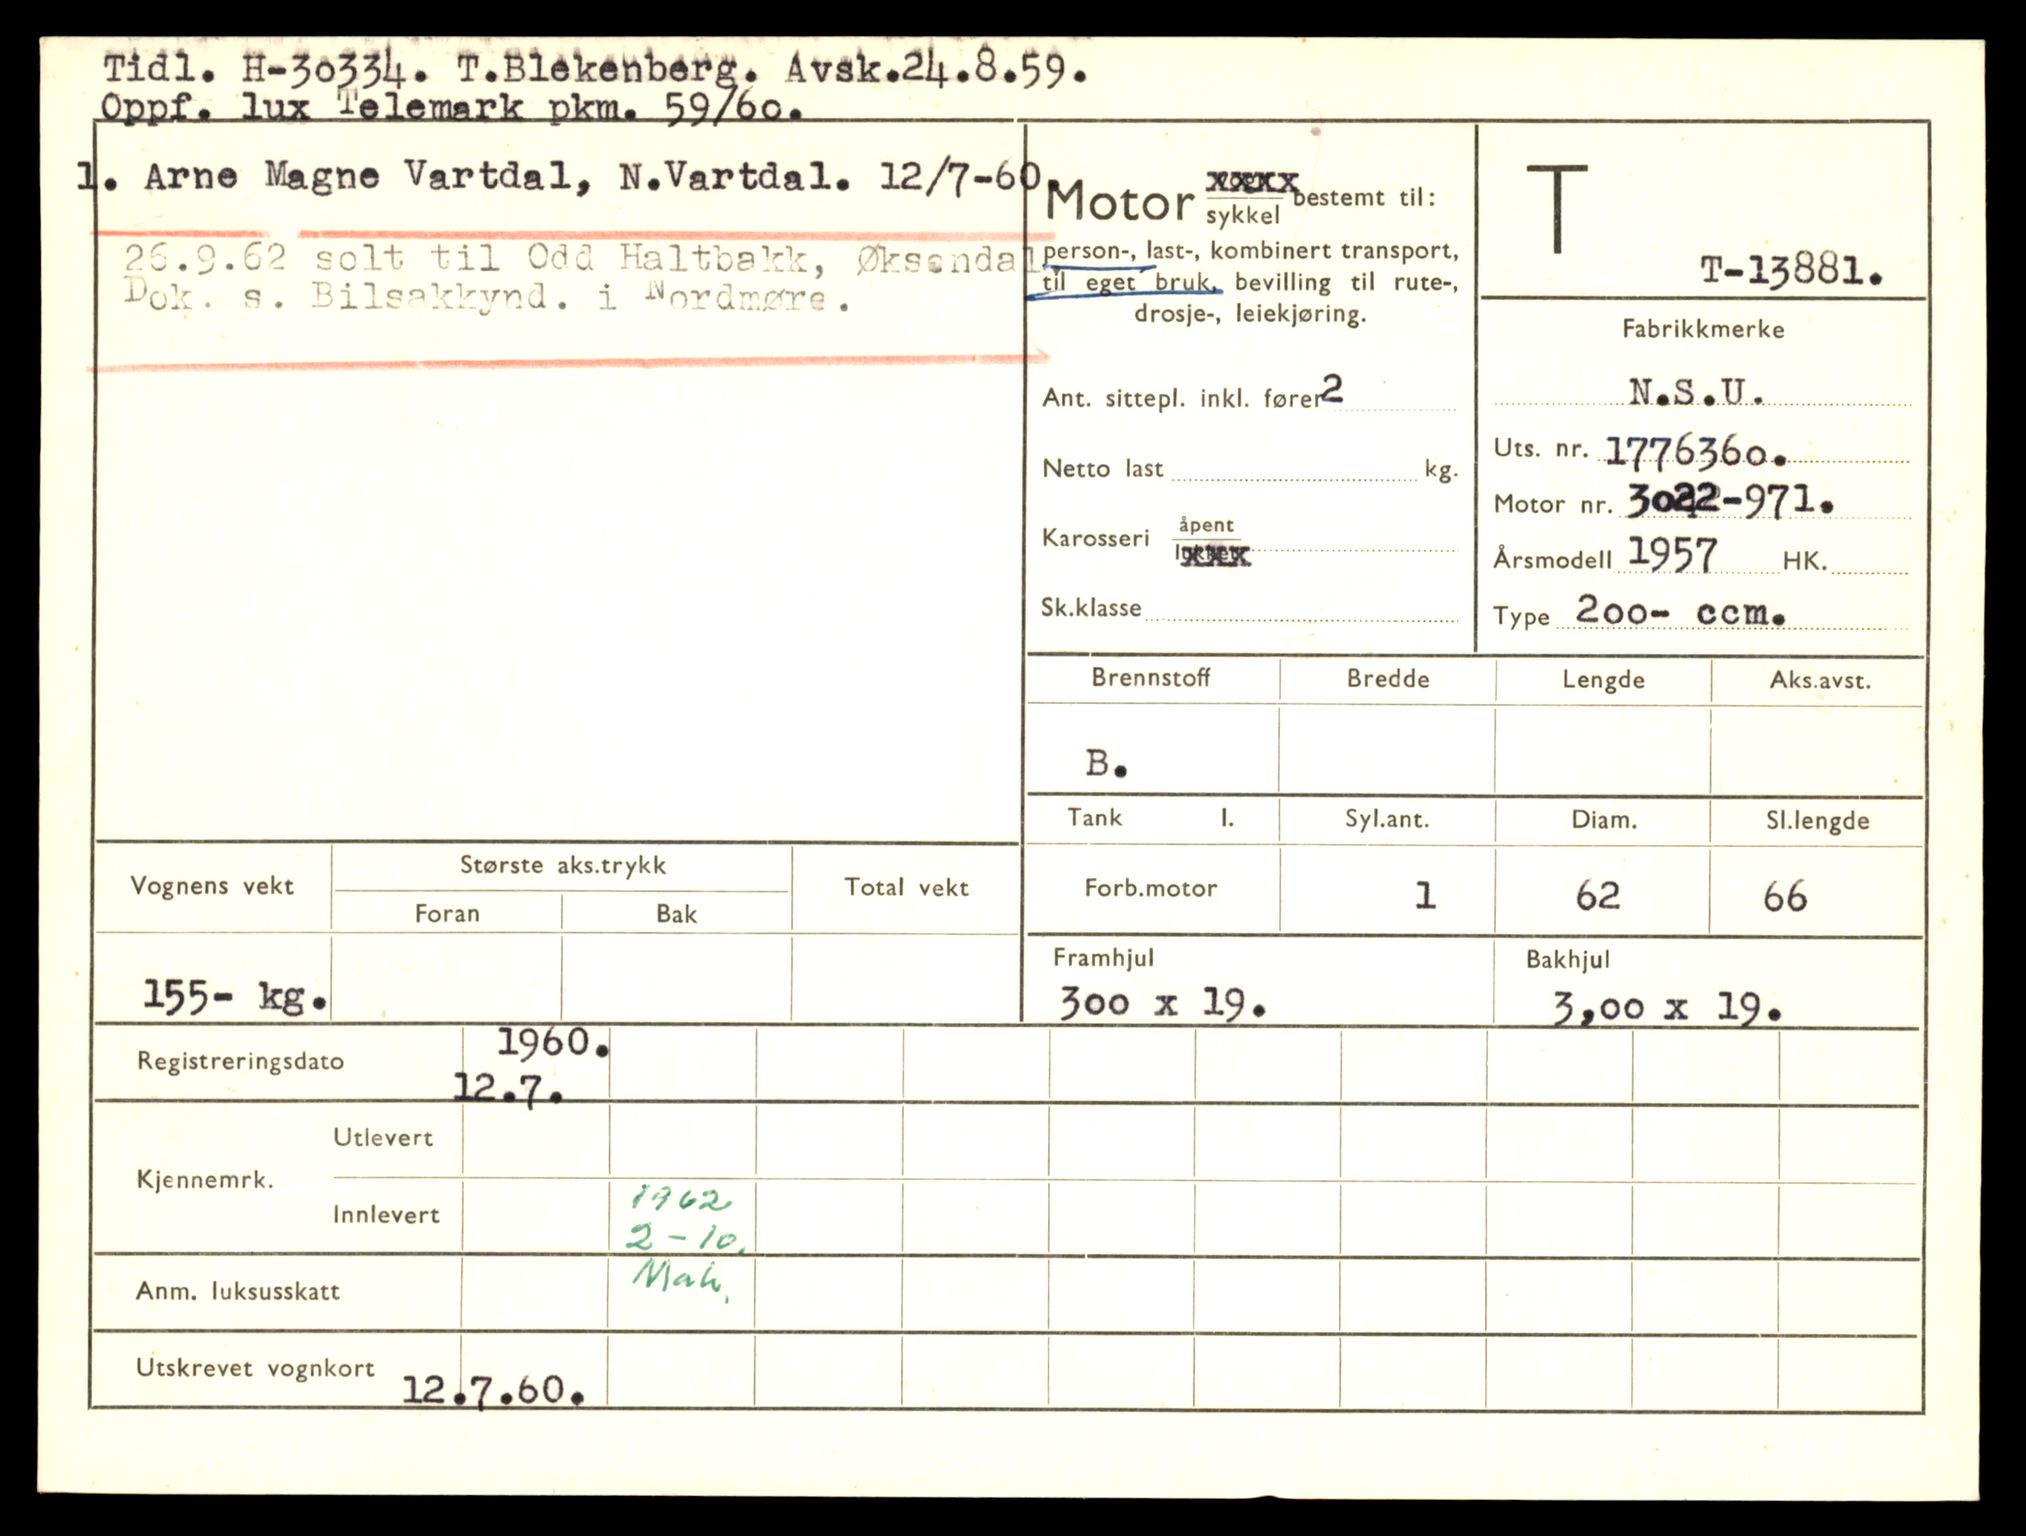 Tidl. H-30334. T.Blekenberg. Avsk.24.8.59.
Oppf. lux Telemark pkm. 59/60.
1. Arne Magne Vartdal, N.Vartdal. 12/7-60.
26.9.62 solt til Odd Haltbakk, Øksendal
Dok. s. Bilsakkynd. i Nordmøre.
Motor sykkel bestemt til:
person-, last-, kombinert transport,
til eget bruk, bevilling til rute-,
drosje-, leiekjøring.
Ant. sittepl. inkl. fører 2
Netto last kg.
Karosseri åpent
lukket
Sk.klasse
T
T-13881.
Fabrikkmerke
N.S.U.
Uts. nr. 1776360.
Motor nr. 3022-971.
Årsmodell 1957 HK.
Type 200- ccm.
Brennstoff Bredde Lengde Aks.avst.
B.
Tank l. Syl.ant. Diam. Sl.lengde
Forb.motor 1 62 66
Framhjul Bakhjul
300 x 19. 3,00 x 19.
Vognens vekt Største aks.trykk Total vekt
Foran Bak
155- kg.
Registreringsdato 1960.
12.7.
Kjennemrk. Utlevert
Innlevert 1962
2-10.
Anm. luksusskatt
Utskrevet vognkort 12.7.60.